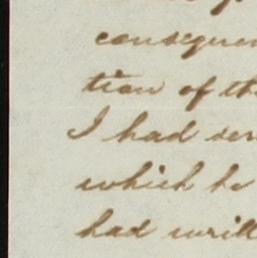 consequen
tion of th
I had ser
which he
had writt